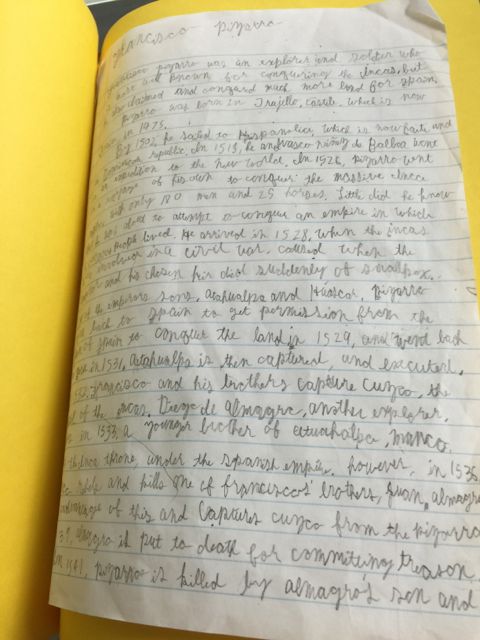 Francisco Pizarro
Francisco pizarro was an explorer and soldier who
most well known for conquering the Incas, but
also claimed and conquerd much more land for Spain.
Pizarro was born in Trujillo, Castile, which is now
in 1475.
By 1502, he sailed to Hispaniola, which is now haite and
Dominican republic. In 1513, he and vasco núñez de Balboa went
expedition to the new world. In 1526, pizarro went
a voyage of his own to conquer the massive Inca
with only 180 men and 25 horses. Little did he know
was about to attempt to conquer an empire in which
people lived. He arrived in 1528, when the incas
involved in a civil war, caused when the
and his chosen heir died suddenly of smallpox.
the emperors sons, atahualpa and Huáscar. Pizarro
back to spain to get permission from the
of spain to conquer the land in 1529, and went back
in 1531, atahualpa is then captured, and executed.
francisco and his brothers capture cuzco, the
of the incas. Diego de almagro, another explorer.
in 1533, a younger brother of atuahalpa, manco,
the Inca throne, under the spanish empire. however, in 1536
rebels and kills one of francisco's brothers, Juan, almagro
advantage of this and captures cuzco from the pizarro
almagro is put to death for committing treason.
1541, pizarro is killed by almagro's son and